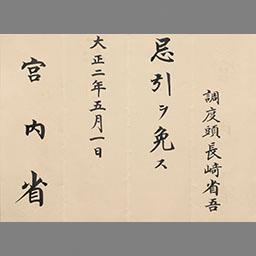 調度頭長﨑省吾
忌引ヲ免ス
大正二年五月一日
宮内省